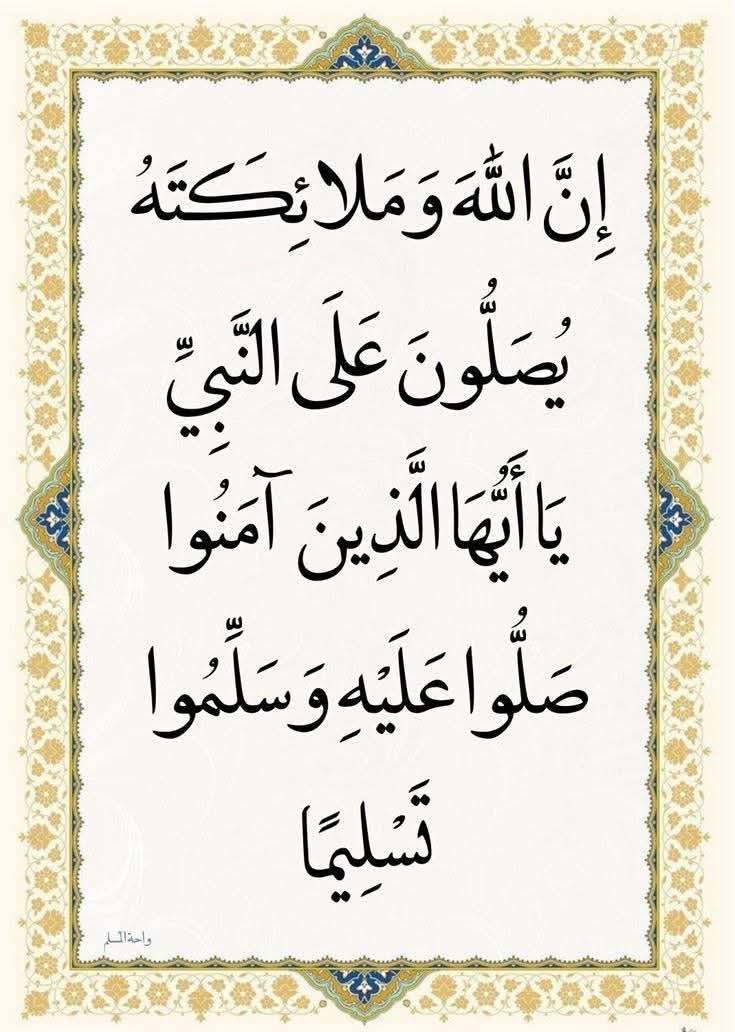 إِنَّ اللّٰهَ وَمَلائِكَتَهُ
يُصَلُّونَ عَلَى النَّبِيِّ
يَا أَيُّهَا الَّذِينَ آمَنُوا
صَلُّوا عَلَيْهِ وَسَلِّمُوا
تَسْلِيمًا
واحة المسلم